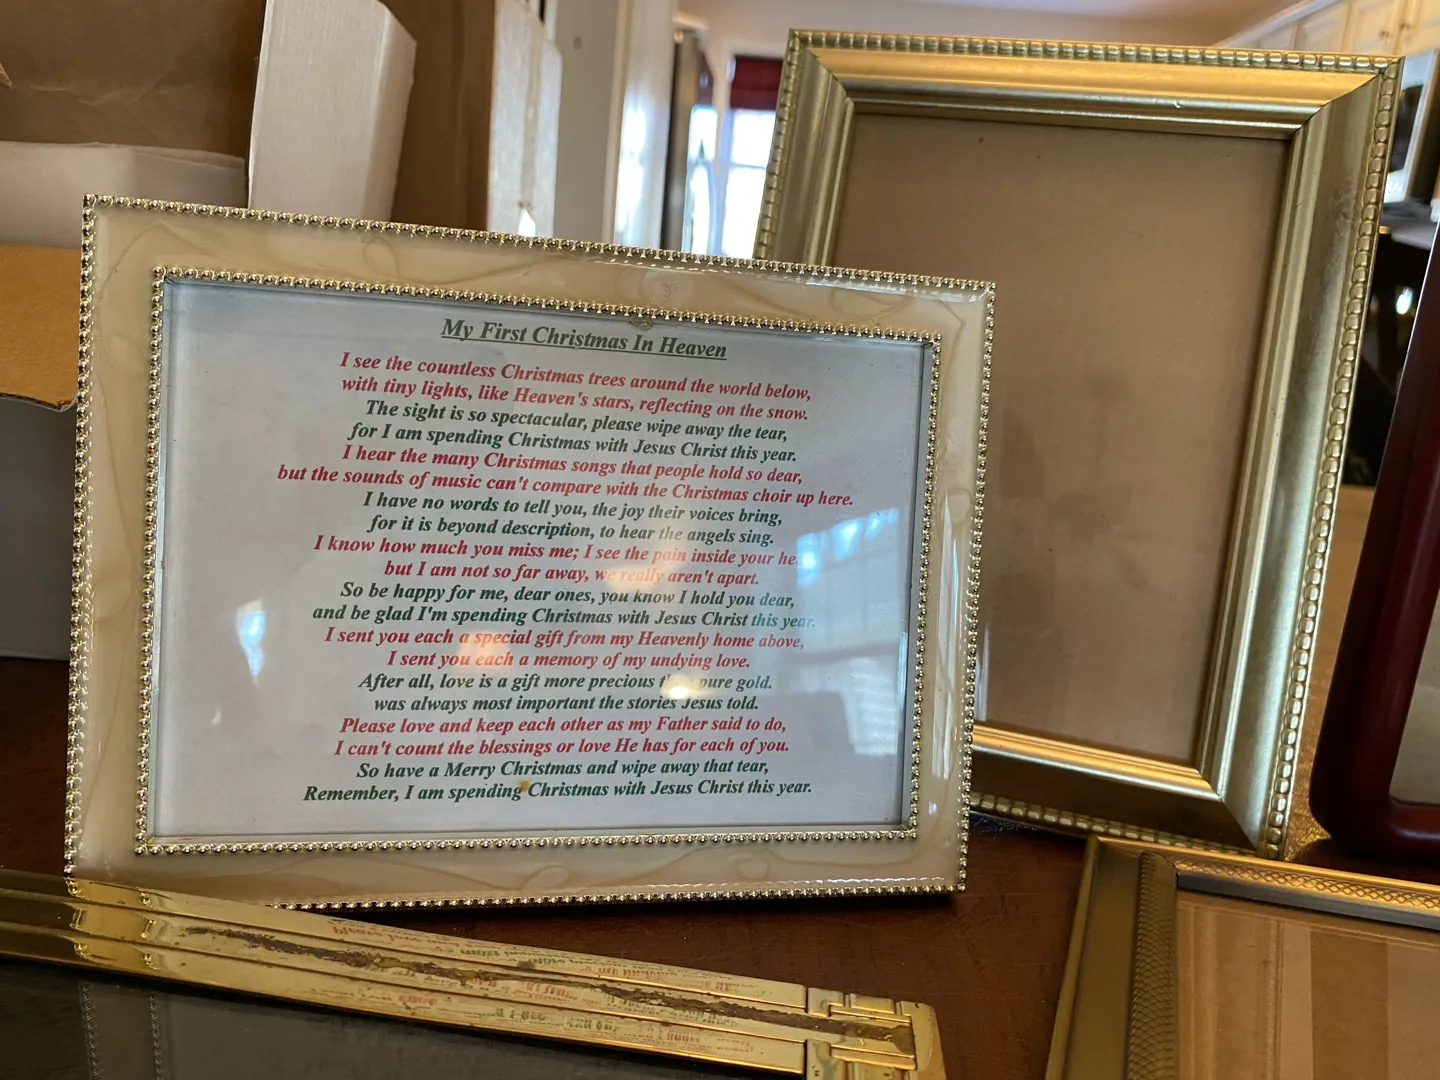 My First Christmas In Heaven
I see the countless Christmas trees around the world below,
with tiny lights, like Heaven's stars, reflecting on the snow.
The sight is so spectacular, please wipe away the tear,
for I am spending Christmas with Jesus Christ this year.
I hear the many Christmas songs that people hold so dear,
but the sounds of music can't compare with the Christmas choir up here.
I have no words to tell you, the joy their voices bring,
for it is beyond description, to hear the angels sing.
I know how much you miss me; I see the pain inside your
but I am not so far away, we really aren't apart.
So be happy for me, dear ones, you know I hold you dear,
and be glad I'm spending Christmas with Jesus Christ this year.
I sent you each a special gift from my Heavenly home above,
I sent you each a memory of my undying love.
After all, love is a gift more precious than pure gold.
was always most important the stories Jesus told.
Please love and keep each other as my Father said to do,
I can't count the blessings or love He has for each of you.
So have a Merry Christmas and wipe away that tear,
Remember, I am spending Christmas with Jesus Christ this year.